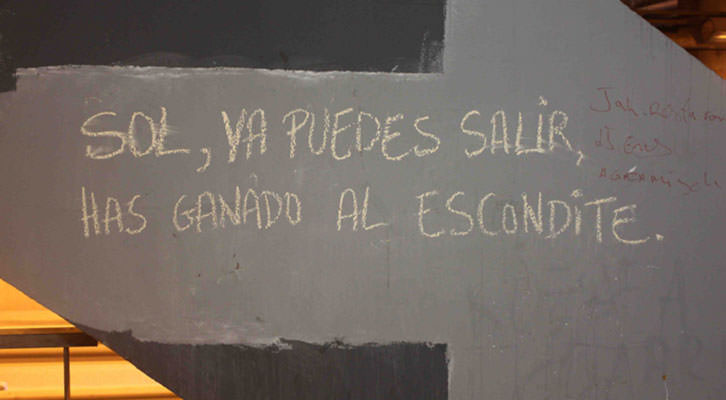 SOL, YA PUEDES SALIR,
HAS GANADO AL ESCONDITE.